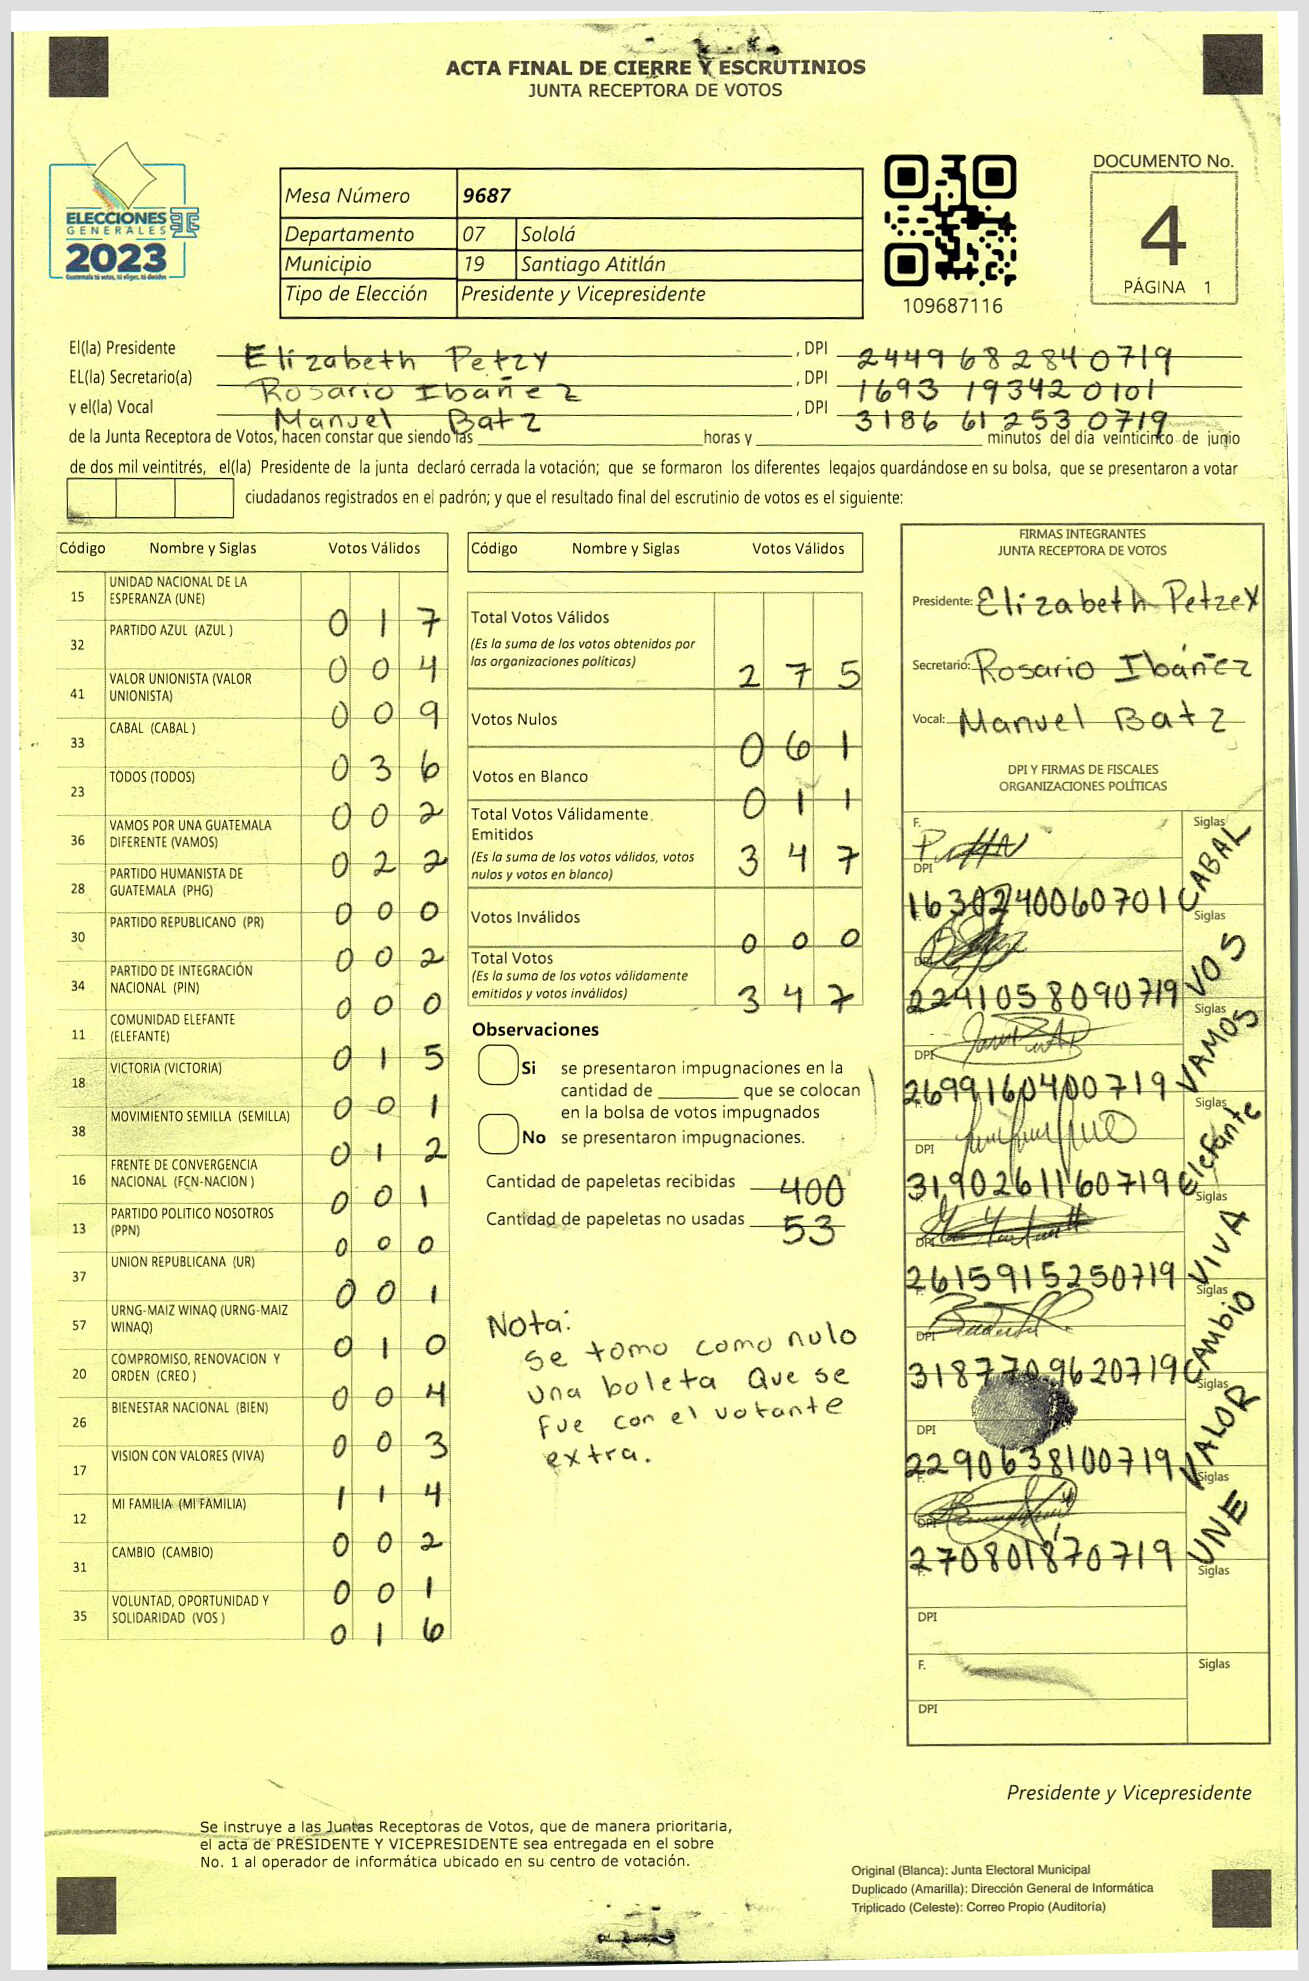 ACTA FINAL DE CIERRE Y ESCRUTINIOS
JUNTA RECEPTORA DE VOTOS
ELECCIONES
GENERALES
2023
Guatemala tú votas, tú eliges, tú decides
Mesa Número 9687
Departamento 07 Sololá
Municipio 19 Santiago Atitlán
Tipo de Elección Presidente y Vicepresidente
109687116
DOCUMENTO No.
4
PÁGINA 1
El(la) Presidente Elizabeth Petzy , DPI 2449 68284 0719
EL(la) Secretario(a) Rosario Ibañez , DPI 1693 19342 0101
y el(la) Vocal Manuel Batz , DPI 3186 61253 0719
de la Junta Receptora de Votos, hacen constar que siendo las horas y minutos del día veinticinco de junio
de dos mil veintitrés, el(la) Presidente de la junta declaró cerrada la votación; que se formaron los diferentes legajos guardándose en su bolsa, que se presentaron a votar
ciudadanos registrados en el padrón; y que el resultado final del escrutinio de votos es el siguiente:
Código Nombre y Siglas Votos Válidos
15 UNIDAD NACIONAL DE LA ESPERANZA (UNE) 0 1 7
32 PARTIDO AZUL (AZUL ) 0 0 4
41 VALOR UNIONISTA (VALOR UNIONISTA) 0 0 9
33 CABAL (CABAL ) 0 3 6
23 TODOS (TODOS) 0 0 2
36 VAMOS POR UNA GUATEMALA DIFERENTE (VAMOS) 0 2 2
28 PARTIDO HUMANISTA DE GUATEMALA (PHG) 0 0 0
30 PARTIDO REPUBLICANO (PR) 0 0 2
34 PARTIDO DE INTEGRACIÓN NACIONAL (PIN) 0 0 0
11 COMUNIDAD ELEFANTE (ELEFANTE) 0 1 5
18 VICTORIA (VICTORIA) 0 0 1
38 MOVIMIENTO SEMILLA (SEMILLA) 0 1 2
16 FRENTE DE CONVERGENCIA NACIONAL (FCN-NACION ) 0 0 1
13 PARTIDO POLITICO NOSOTROS (PPN) 0 0 0
37 UNION REPUBLICANA (UR) 0 0 1
57 URNG-MAIZ WINAQ (URNG-MAIZ WINAQ) 0 1 0
20 COMPROMISO, RENOVACION Y ORDEN (CREO ) 0 0 4
26 BIENESTAR NACIONAL (BIEN) 0 0 3
17 VISION CON VALORES (VIVA) 1 1 4
12 MI FAMILIA (MI FAMILIA) 0 0 2
31 CAMBIO (CAMBIO) 0 0 1
35 VOLUNTAD, OPORTUNIDAD Y SOLIDARIDAD (VOS ) 0 1 6
Código Nombre y Siglas Votos Válidos
Total Votos Válidos
(Es la suma de los votos obtenidos por
las organizaciones políticas) 2 7 5
Votos Nulos 0 6 1
Votos en Blanco 0 1 1
Total Votos Válidamente
Emitidos
(Es la suma de los votos válidos, votos
nulos y votos en blanco) 3 4 7
Votos Inválidos 0 0 0
Total Votos
(Es la suma de los votos válidamente
emitidos y votos inválidos) 3 4 7
Observaciones
Si se presentaron impugnaciones en la
cantidad de que se colocan
en la bolsa de votos impugnados
No se presentaron impugnaciones.
Cantidad de papeletas recibidas 400
Cantidad de papeletas no usadas 53
Nota:
se tomo como nulo
una boleta Que se
fue con el votante
extra.
FIRMAS INTEGRANTES
JUNTA RECEPTORA DE VOTOS
Presidente: Elizabeth Petzey
Secretario: Rosario Ibáñez
Vocal: Manuel Batz
DPI Y FIRMAS DE FISCALES
ORGANIZACIONES POLÍTICAS
F. Siglas
DPI 1630240060701 CABAL
Siglas
DPI 2241058090719 VOS
Siglas
DPI 2699160400719 VAMOS
Siglas
DPI 3190261160719 Elefante
Siglas
DPI 2615915250719 VIVA
F. Siglas
DPI 3187709620719 CAMbio
F. Siglas
DPI 2290638100719 VALOR
F. Siglas
DPI 270801870719 UNE
F. Siglas
DPI
F. Siglas
DPI
Presidente y Vicepresidente
Se instruye a las Juntas Receptoras de Votos, que de manera prioritaria,
el acta de PRESIDENTE Y VICEPRESIDENTE sea entregada en el sobre
No. 1 al operador de informática ubicado en su centro de votación.
Original (Blanca): Junta Electoral Municipal
Duplicado (Amarilla): Dirección General de Informática
Triplicado (Celeste): Correo Propio (Auditoría)